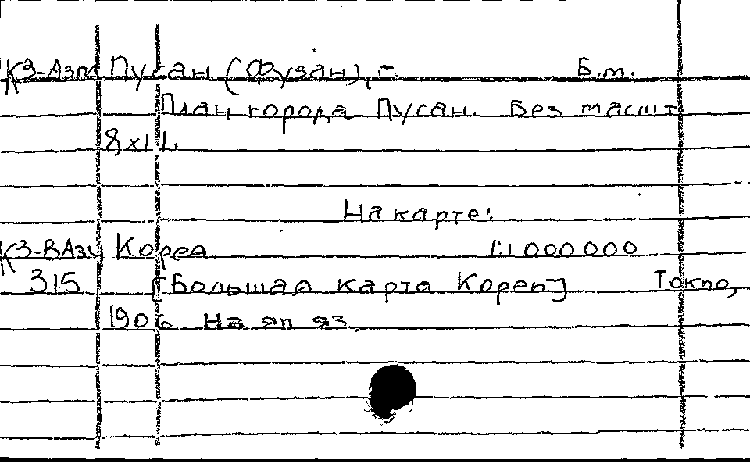 К3-Азт Пусан (Фузан), - Б.м.
План города Пусан. Без масшт
8х11
На карте:
К3-ВАзи Корея 1:1000000
315 [Большая карта Кореи] Токио,
1906 На яп яз